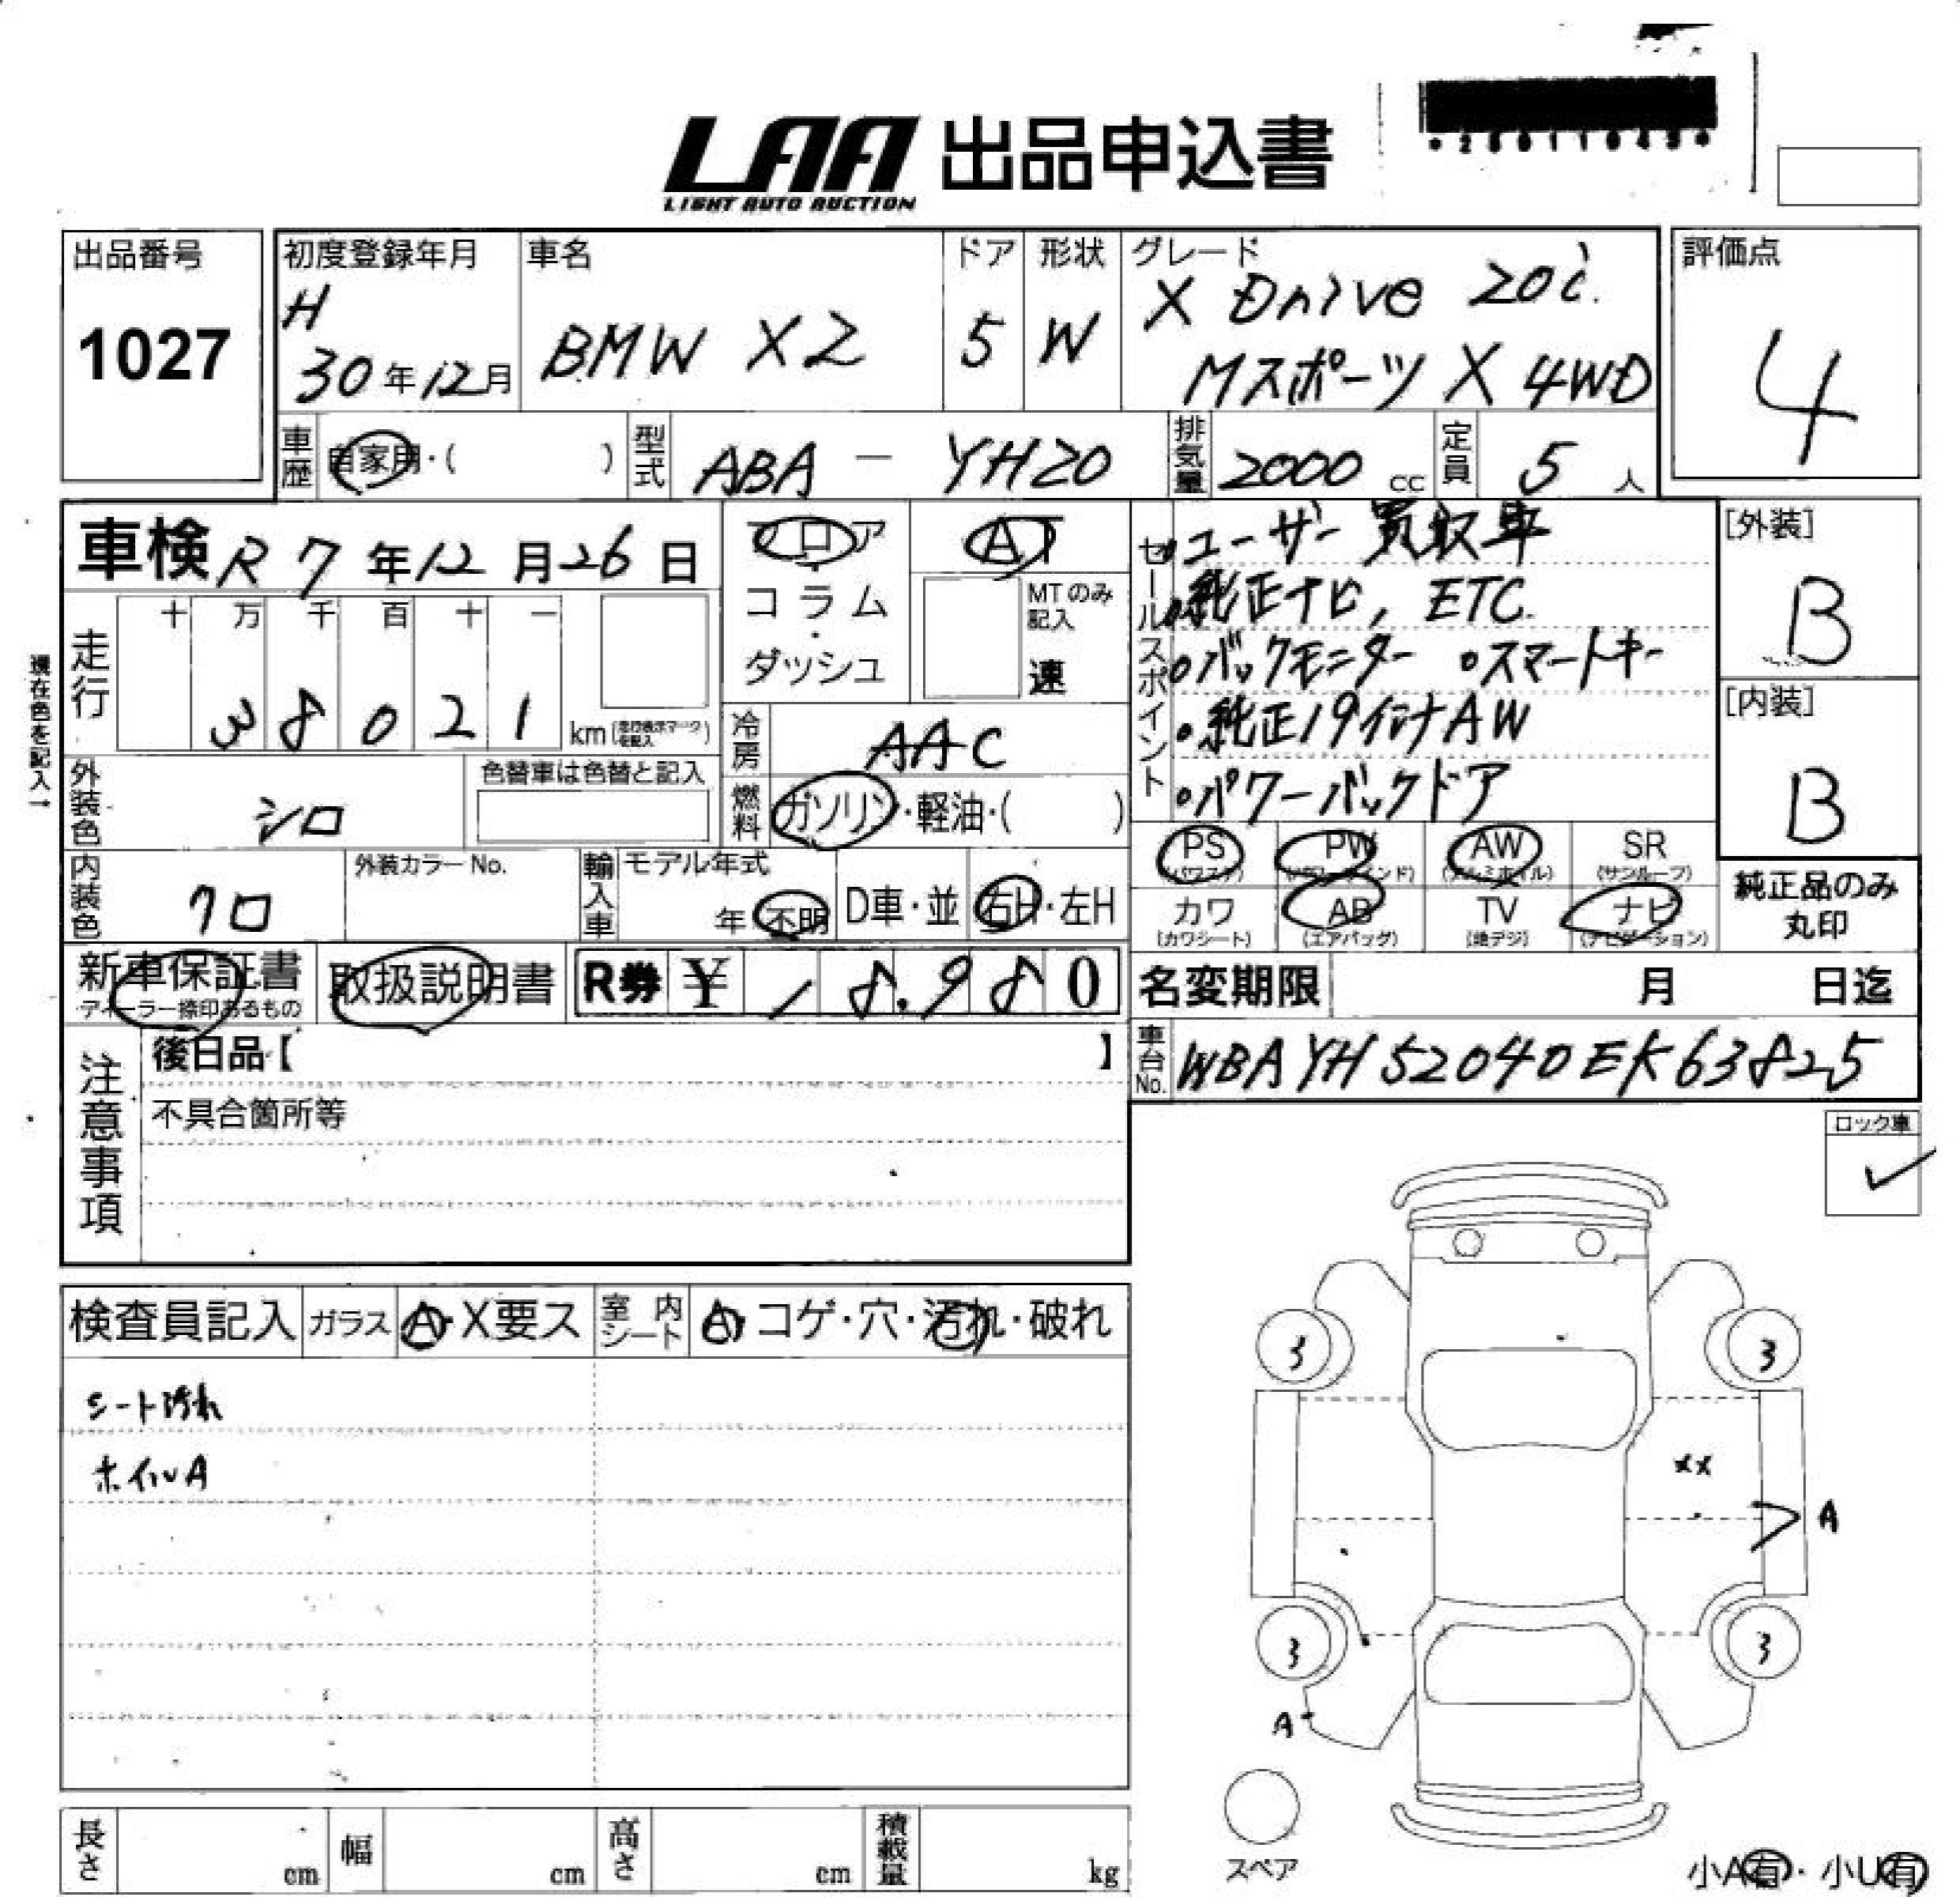 LAA 出品申込書
LIGHT AUTO AUCTION
出品番号
1027
初度登録年月
H
30年12月
車名
BMW X2
ドア
5
形状
W
グレード
X Drive 20i.
Mスポーツ X 4WD
評価点
4
車歴
自家用・( )
型式
ABA - YH20
排気量
2000 cc
定員
5 人
車検 R 7年12月26日
フロア
コラム
・
ダッシュ
AT
MTのみ記入
速
走行
十 万 千 百 十 一
3 8 0 2 1
km (走行表示マークを記入)
現在色を記入→
外装色
シロ
色替車は色替と記入
冷房
AAC
燃料
ガソリン・軽油・( )
内装色
クロ
外装カラーNo.
輸入車
モデル年式
年 不明
D車・並
右H・左H
セールスポイント
・ユーザー買取車
・純正ナビ, ETC.
・バックモニター ・スマートキー
・純正19インチAW
・パワーバックドア
[外装]
B
[内装]
B
PS
(パワステ)
PW
(パワーウインド)
AW
(アルミホイル)
SR
(サンルーフ)
カワ
(カワシート)
AB
(エアバッグ)
TV
(地デジ)
ナビ
(ナビゲーション)
純正品のみ
丸印
新車保証書
ディーラー捺印あるもの
取扱説明書
R券 ¥ 18,980
名変期限 月 日迄
車台No.
WBAYH52040EK63825
注意事項
後日品【 】
不具合箇所等
ロック車
✓
検査員記入
ガラス
A・X要ス
室内シート
A・コゲ・穴・汚れ・破れ
シート汚れ
ホイルA
3
3
XX
A
3
3
A
スペア
小A有・小U有
長さ cm
幅 cm
高さ cm
積載量 kg